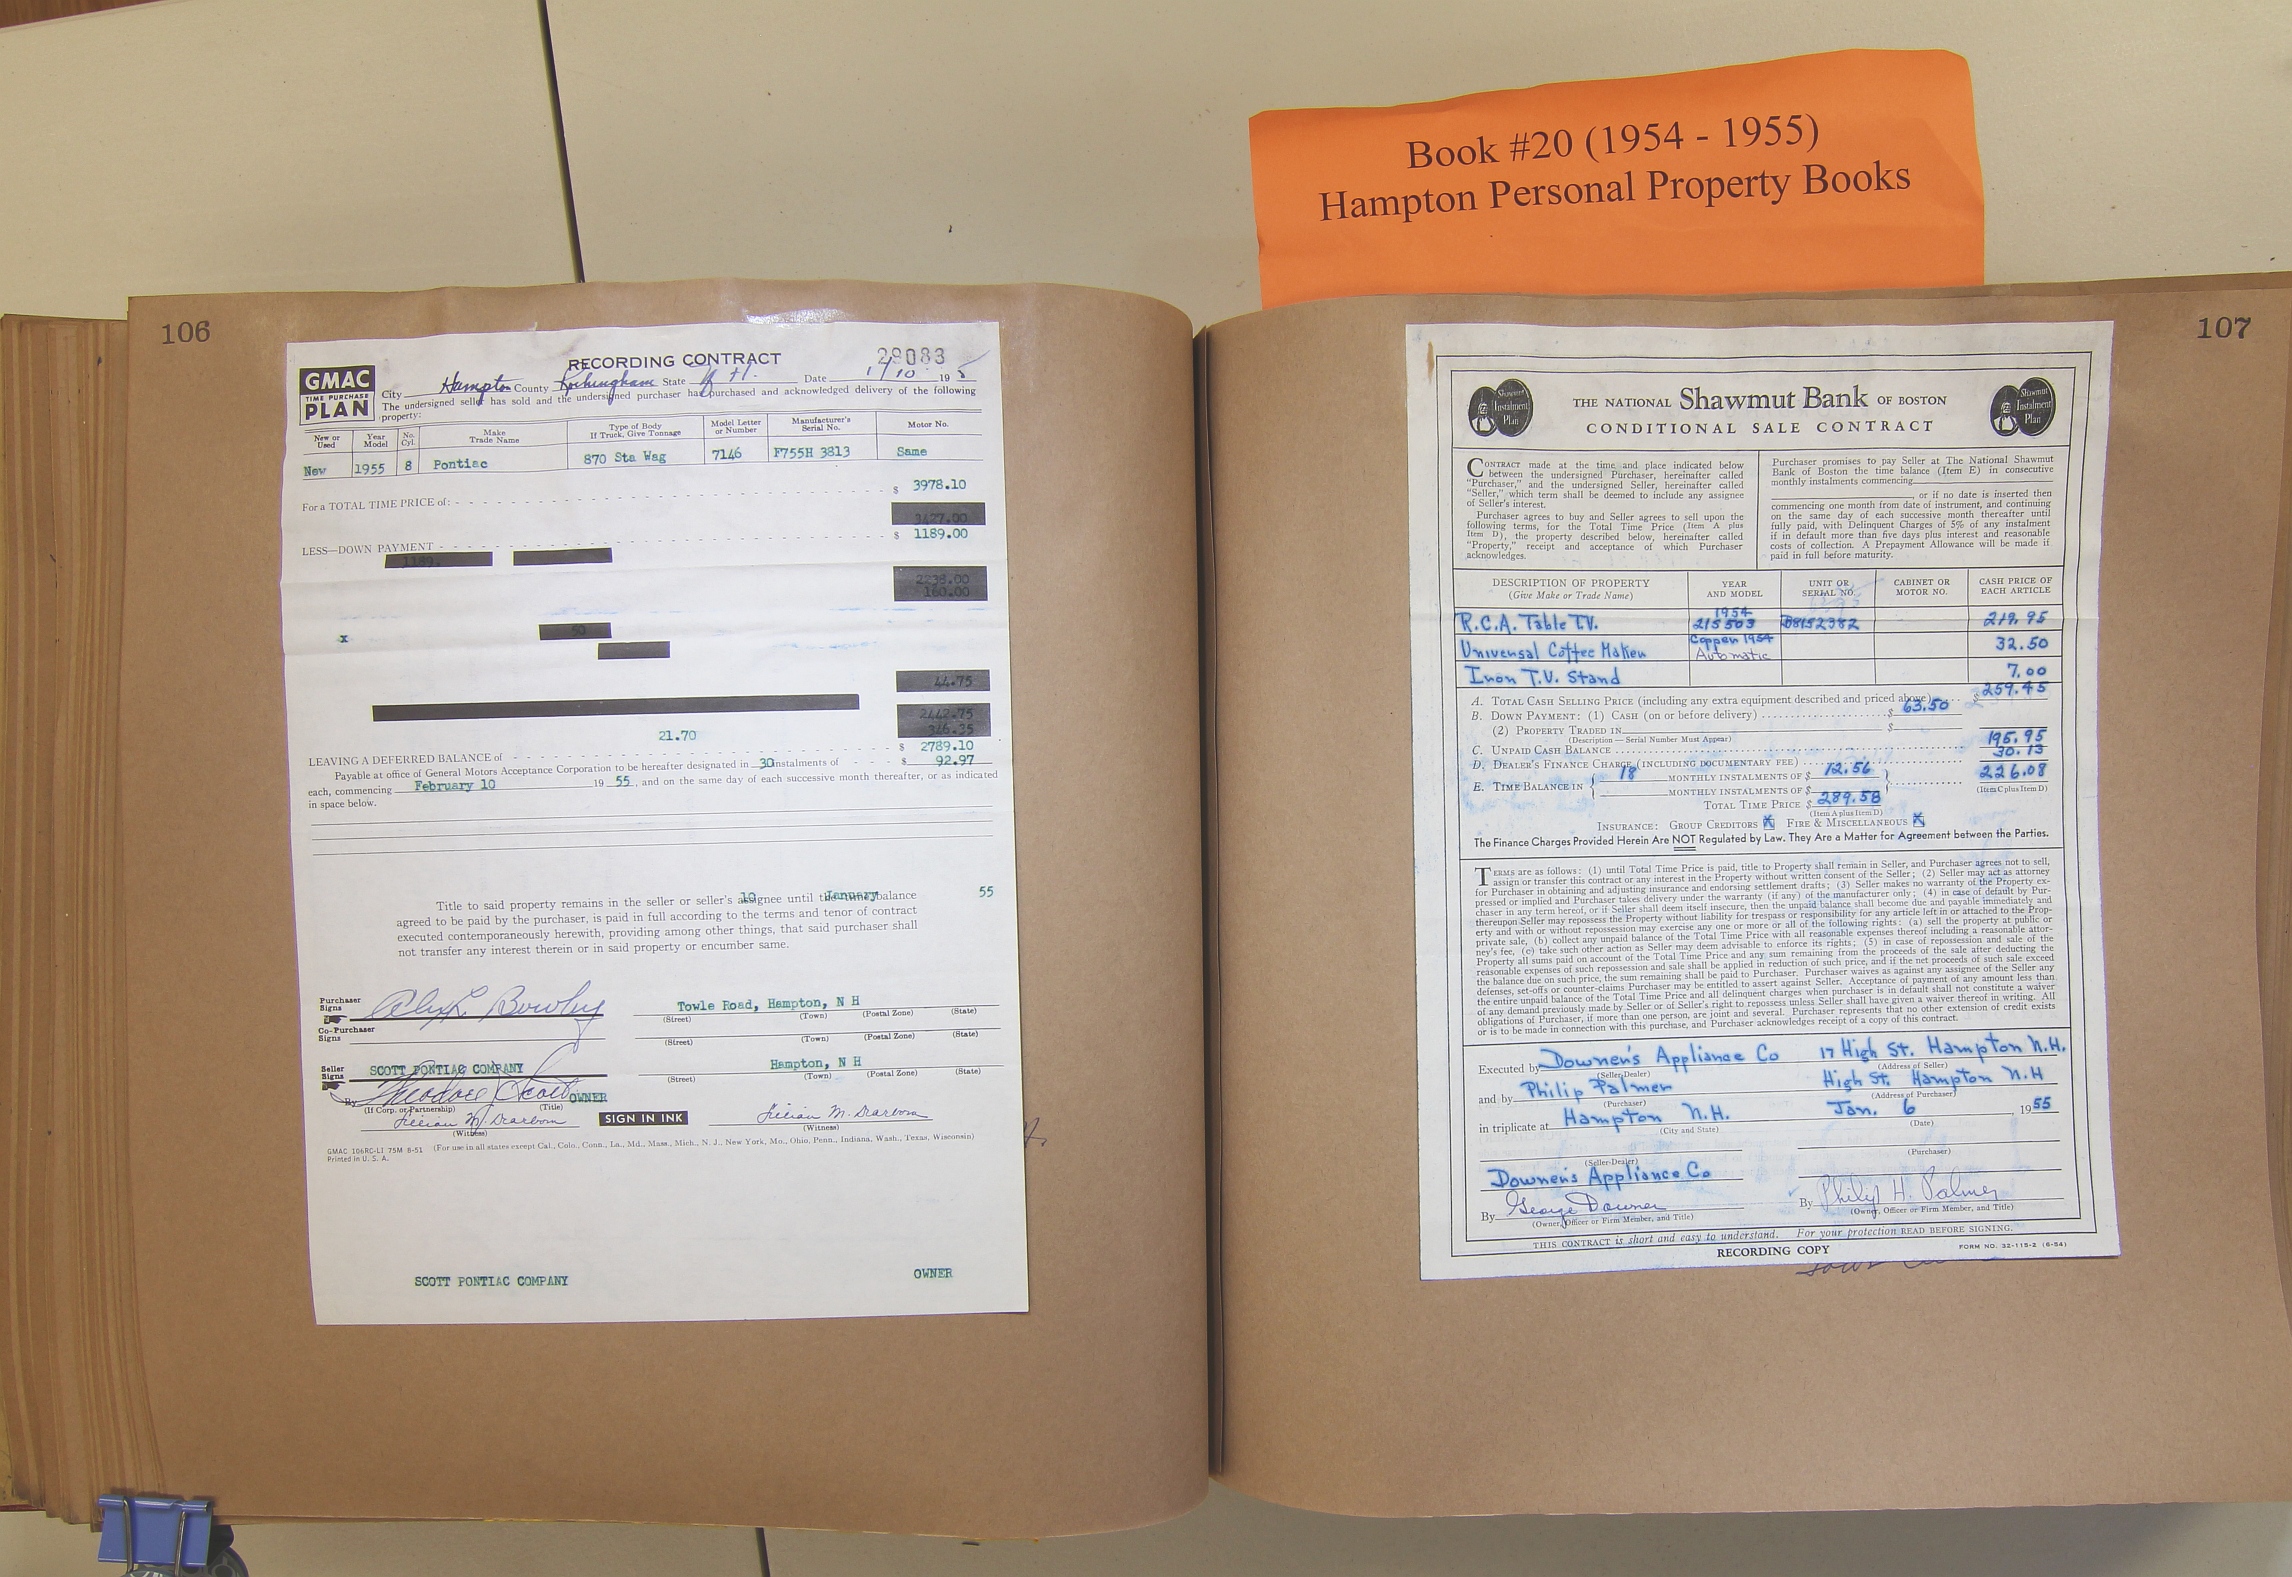 Book #20 (1954 - 1955)
Hampton Personal Property Books
106
GMAC
TIME PURCHASE
PLAN
RECORDING CONTRACT
29083
City Hampton County Rockingham State N H. Date 1/10 195
The undersigned seller has sold and the undersigned purchaser has purchased and acknowledged delivery of the following
property:
New or Used Year Model No. Cyl. Make Trade Name Type of Body If Truck, Give Tonnage Model Letter or Number Manufacturer's Serial No. Motor No.
New 1955 8 Pontiac 870 Sta Wag 7146 F755H 3813 Same
For a TOTAL TIME PRICE of: $ 3978.10
3427.00
LESS—DOWN PAYMENT $ 1189.00
1189.
2238.00
160.00
x 50
44.75
2442.75
346.35
21.70
LEAVING A DEFERRED BALANCE of $ 2789.10
Payable at office of General Motors Acceptance Corporation to be hereafter designated in 30 instalments of $ 92.97
each, commencing February 10 19 55, and on the same day of each successive month thereafter, or as indicated
in space below.
10 January 55
Title to said property remains in the seller or seller's assignee until the time balance
agreed to be paid by the purchaser, is paid in full according to the terms and tenor of contract
executed contemporaneously herewith, providing among other things, that said purchaser shall
not transfer any interest therein or in said property or encumber same.
Purchaser Signs Towle Road, Hampton, N H
(Street) (Town) (Postal Zone) (State)
Co-Purchaser Signs
(Street) (Town) (Postal Zone) (State)
Seller Signs SCOTT PONTIAC COMPANY Hampton, N H
(Street) (Town) (Postal Zone) (State)
By Theodore Scott OWNER
(If Corp. or Partnership) (Title)
Lillian M. Dearborn SIGN IN INK Lillian M. Dearborn
(Witness) (Witness)
GMAC 106RC-LI 75M 8-51 (For use in all states except Cal., Colo., Conn., La., Md., Mass., Mich., N. J., New York, Mo., Ohio, Penn., Indiana, Wash., Texas, Wisconsin)
Printed in U. S. A.
SCOTT PONTIAC COMPANY OWNER
107
Shawmut Instalment Plan
THE NATIONAL Shawmut Bank OF BOSTON
CONDITIONAL SALE CONTRACT
Shawmut Instalment Plan
CONTRACT made at the time and place indicated below
between the undersigned Purchaser, hereinafter called
"Purchaser," and the undersigned Seller, hereinafter called
"Seller," which term shall be deemed to include any assignee
of Seller's interest.
Purchaser agrees to buy and Seller agrees to sell upon the
following terms, for the Total Time Price (Item A plus
Item D), the property described below, hereinafter called
"Property," receipt and acceptance of which Purchaser
acknowledges.
Purchaser promises to pay Seller at The National Shawmut
Bank of Boston the time balance (Item E) in consecutive
monthly instalments commencing
, or if no date is inserted then
commencing one month from date of instrument, and continuing
on the same day of each successive month thereafter until
fully paid, with Delinquent Charges of 5% of any instalment
if in default more than five days plus interest and reasonable
costs of collection. A Prepayment Allowance will be made if
paid in full before maturity.
DESCRIPTION OF PROPERTY (Give Make or Trade Name) YEAR AND MODEL UNIT OR SERIAL NO. CABINET OR MOTOR NO. CASH PRICE OF EACH ARTICLE
R.C.A. Table T.V. 1954 21S503 B8152382 219.95
Universal Coffee Maker Copper 1954 Automatic 32.50
Iron T.V. Stand 7.00
A. TOTAL CASH SELLING PRICE (including any extra equipment described and priced above) $ 259.45
B. DOWN PAYMENT: (1) CASH (on or before delivery) $ 63.50
(2) PROPERTY TRADED IN $
(Description — Serial Number Must Appear)
C. UNPAID CASH BALANCE 195.95
D. DEALER'S FINANCE CHARGE (INCLUDING DOCUMENTARY FEE) 30.13
E. TIME BALANCE IN 18 MONTHLY INSTALMENTS OF $ 12.56 226.08
MONTHLY INSTALMENTS OF $ (Item C plus Item D)
TOTAL TIME PRICE $ 289.58
(Item A plus Item D)
INSURANCE: GROUP CREDITORS X FIRE & MISCELLANEOUS X
The Finance Charges Provided Herein Are NOT Regulated by Law. They Are a Matter for Agreement between the Parties.
TERMS are as follows: (1) until Total Time Price is paid, title to Property shall remain in Seller, and Purchaser agrees not to sell,
assign or transfer this contract or any interest in the Property without written consent of the Seller; (2) Seller may act as attorney
for Purchaser in obtaining and adjusting insurance and endorsing settlement drafts; (3) Seller makes no warranty of the Property ex-
pressed or implied and Purchaser takes delivery under the warranty (if any) of the manufacturer only; (4) in case of default by Pur-
chaser in any term hereof, or if Seller shall deem itself insecure, then the unpaid balance shall become due and payable immediately and
thereupon Seller may repossess the Property without liability for trespass or responsibility for any article left in or attached to the Prop-
erty and with or without repossession may exercise any one or more or all of the following rights: (a) sell the property at public or
private sale, (b) collect any unpaid balance of the Total Time Price with all reasonable expenses thereof including a reasonable attor-
ney's fee, (c) take such other action as Seller may deem advisable to enforce its rights; (5) in case of repossession and sale of the
Property all sums paid on account of the Total Time Price and any sum remaining from the proceeds of the sale after deducting the
reasonable expenses of such repossession and sale shall be applied in reduction of such price, and if the net proceeds of such sale exceed
the balance due on such price, the sum remaining shall be paid to Purchaser. Purchaser waives as against any assignee of the Seller any
defenses, set-offs or counter-claims Purchaser may be entitled to assert against Seller. Acceptance of payment of any amount less than
the entire unpaid balance of the Total Time Price and all delinquent charges when purchaser is in default shall not constitute a waiver
of any demand previously made by Seller or of Seller's right to repossess unless Seller shall have given a waiver thereof in writing. All
obligations of Purchaser, if more than one person, are joint and several. Purchaser represents that no other extension of credit exists
or is to be made in connection with this purchase, and Purchaser acknowledges receipt of a copy of this contract.
Executed by Downer's Appliance Co 17 High St. Hampton N.H.
(Seller-Dealer) (Address of Seller)
and by Philip Palmer High St. Hampton N.H
(Purchaser) (Address of Purchaser)
in triplicate at Hampton N.H. Jan. 6, 1955
(City and State) (Date)
(Seller-Dealer) (Purchaser)
Downer's Appliance Co
By George Downer By Philip H. Palmer
(Owner, Officer or Firm Member, and Title) (Owner, Officer or Firm Member, and Title)
THIS CONTRACT is short and easy to understand. For your protection READ BEFORE SIGNING.
RECORDING COPY FORM NO. 32-115-2 (6-54)